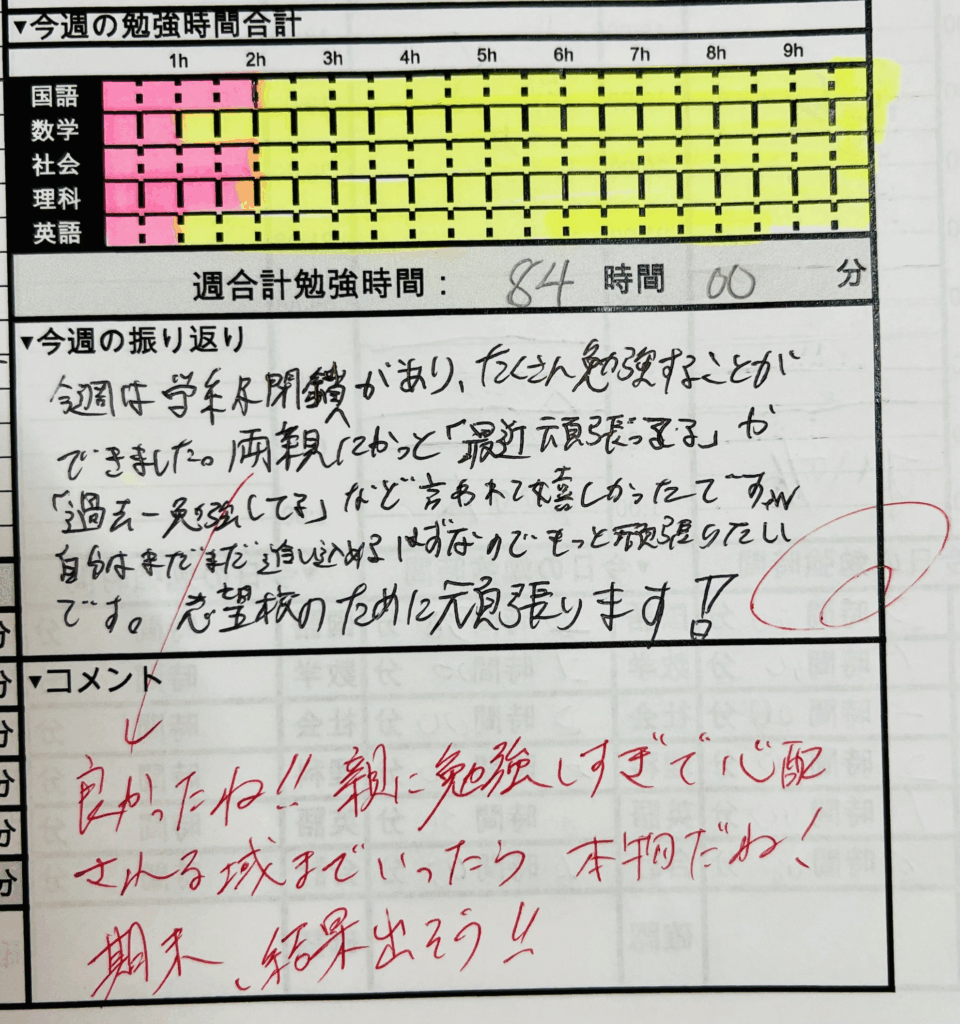 ▼今週の勉強時間合計
1h 2h 3h 4h 5h 6h 7h 8h 9h
国語
数学
社会
理科
英語
週合計勉強時間： 84 時間 00 分
▼今週の振り返り
今週は学年閉鎖があり、たくさん勉強することが
できました。両親にかっと「最近頑張ってる」か
「過去一勉強してる」など言われて嬉しかったてすw
自分はまだまだ追い込めるはずなのでもっと頑張りたい
です。志望校のために頑張ります!!
▼コメント
良かったね!! 親に勉強しすぎで心配
される域までいったら 本物だね!
期末、結果出そう!!